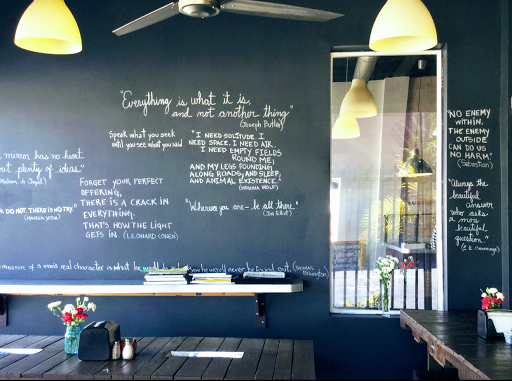 "Everything is what it is,
and not another thing"
(Joseph Butler)
Speak what you seek
until you see what you said
"I NEED SOLITUDE. I
NEED SPACE. I NEED AIR.
I NEED EMPTY FIELDS
ROUND ME;
AND MY LEGS POUNDING
ALONG ROADS; AND SLEEP;
AND ANIMAL EXISTENCE."
(VIRGINIA WOOLF)
mirror has no heart
but plenty of ideas"
FORGET YOUR PERFECT
OFFERING,
THERE IS A CRACK IN
EVERYTHING.
THAT'S HOW THE LIGHT
GETS IN. (LEONARD COHEN)
OR DO NOT. THERE IS NO TRY"
(MASTER YODA)
"Wherever you are - be all there"
(Jim Elliot)
measure of a man's real character is what he would do if he knew he would never be found out.
"NO ENEMY
WITHIN,
THE ENEMY
OUTSIDE
CAN DO US
NO HARM."
"Always the
beautiful
answer
who asks
a more
beautiful
question."
(E.E. Cummings)